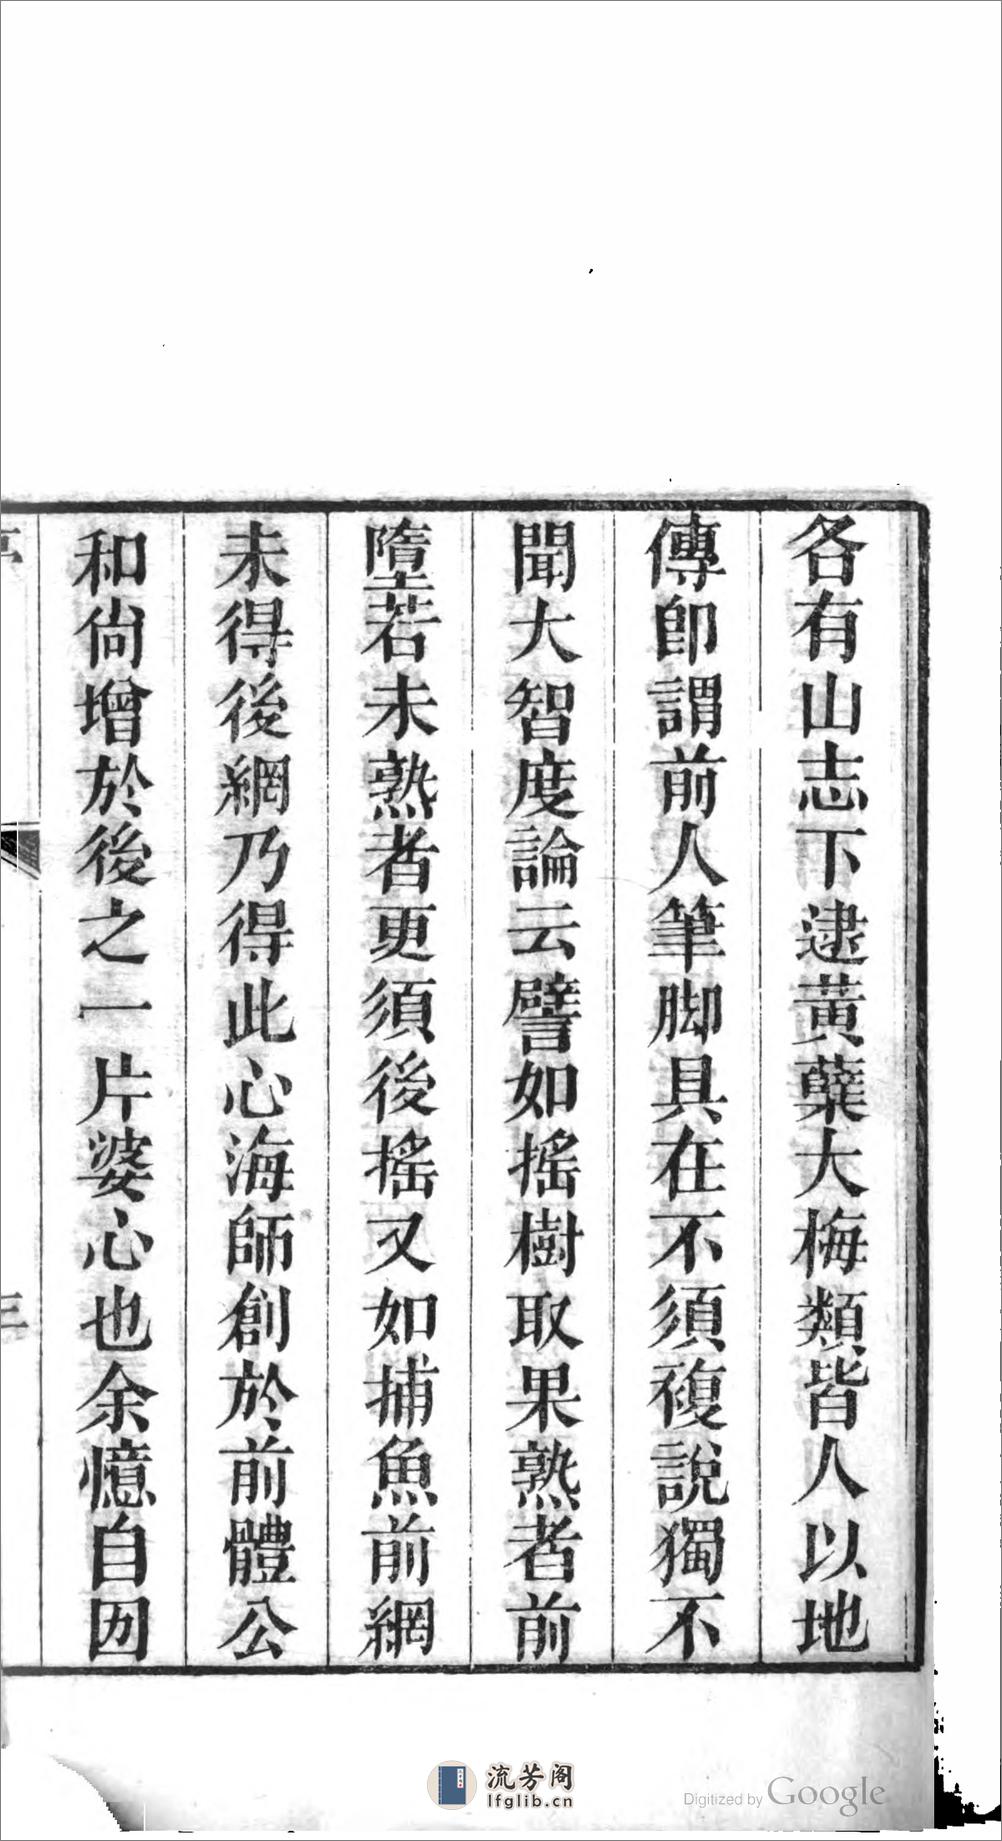 各有山志下逮黃蘗大梅類皆人以地
傳即謂前人筆脚具在不須複說獨不
聞大智度論云譬如搖樹取果熟者前
墮若未熟者更須後搖又如捕魚前網
未得後網乃得此心海師創於前體公
和尙增於後之一片婆心也余憶自因
三
流芳阁
lfglib.cn
Digitized by Google